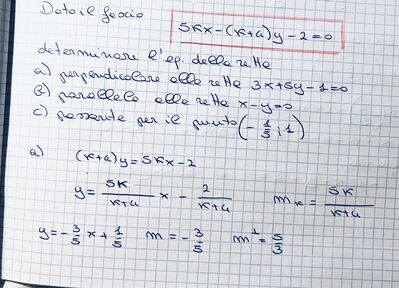 Dato il fascio
5kx-(k+4)y-2=0
determinare l'eq. della retta
a) perpendicolare alla retta 3x+5y-1=0
b) parallela alla retta x-y=0
c) passante per il punto (-1/5; 1)
a) (k+4)y=5kx-2
y= 5k/k+4 x - 2/k+4 mk= 5k/k+4
y=-3/5 x+1/5 m=-3/5 m¹=5/3